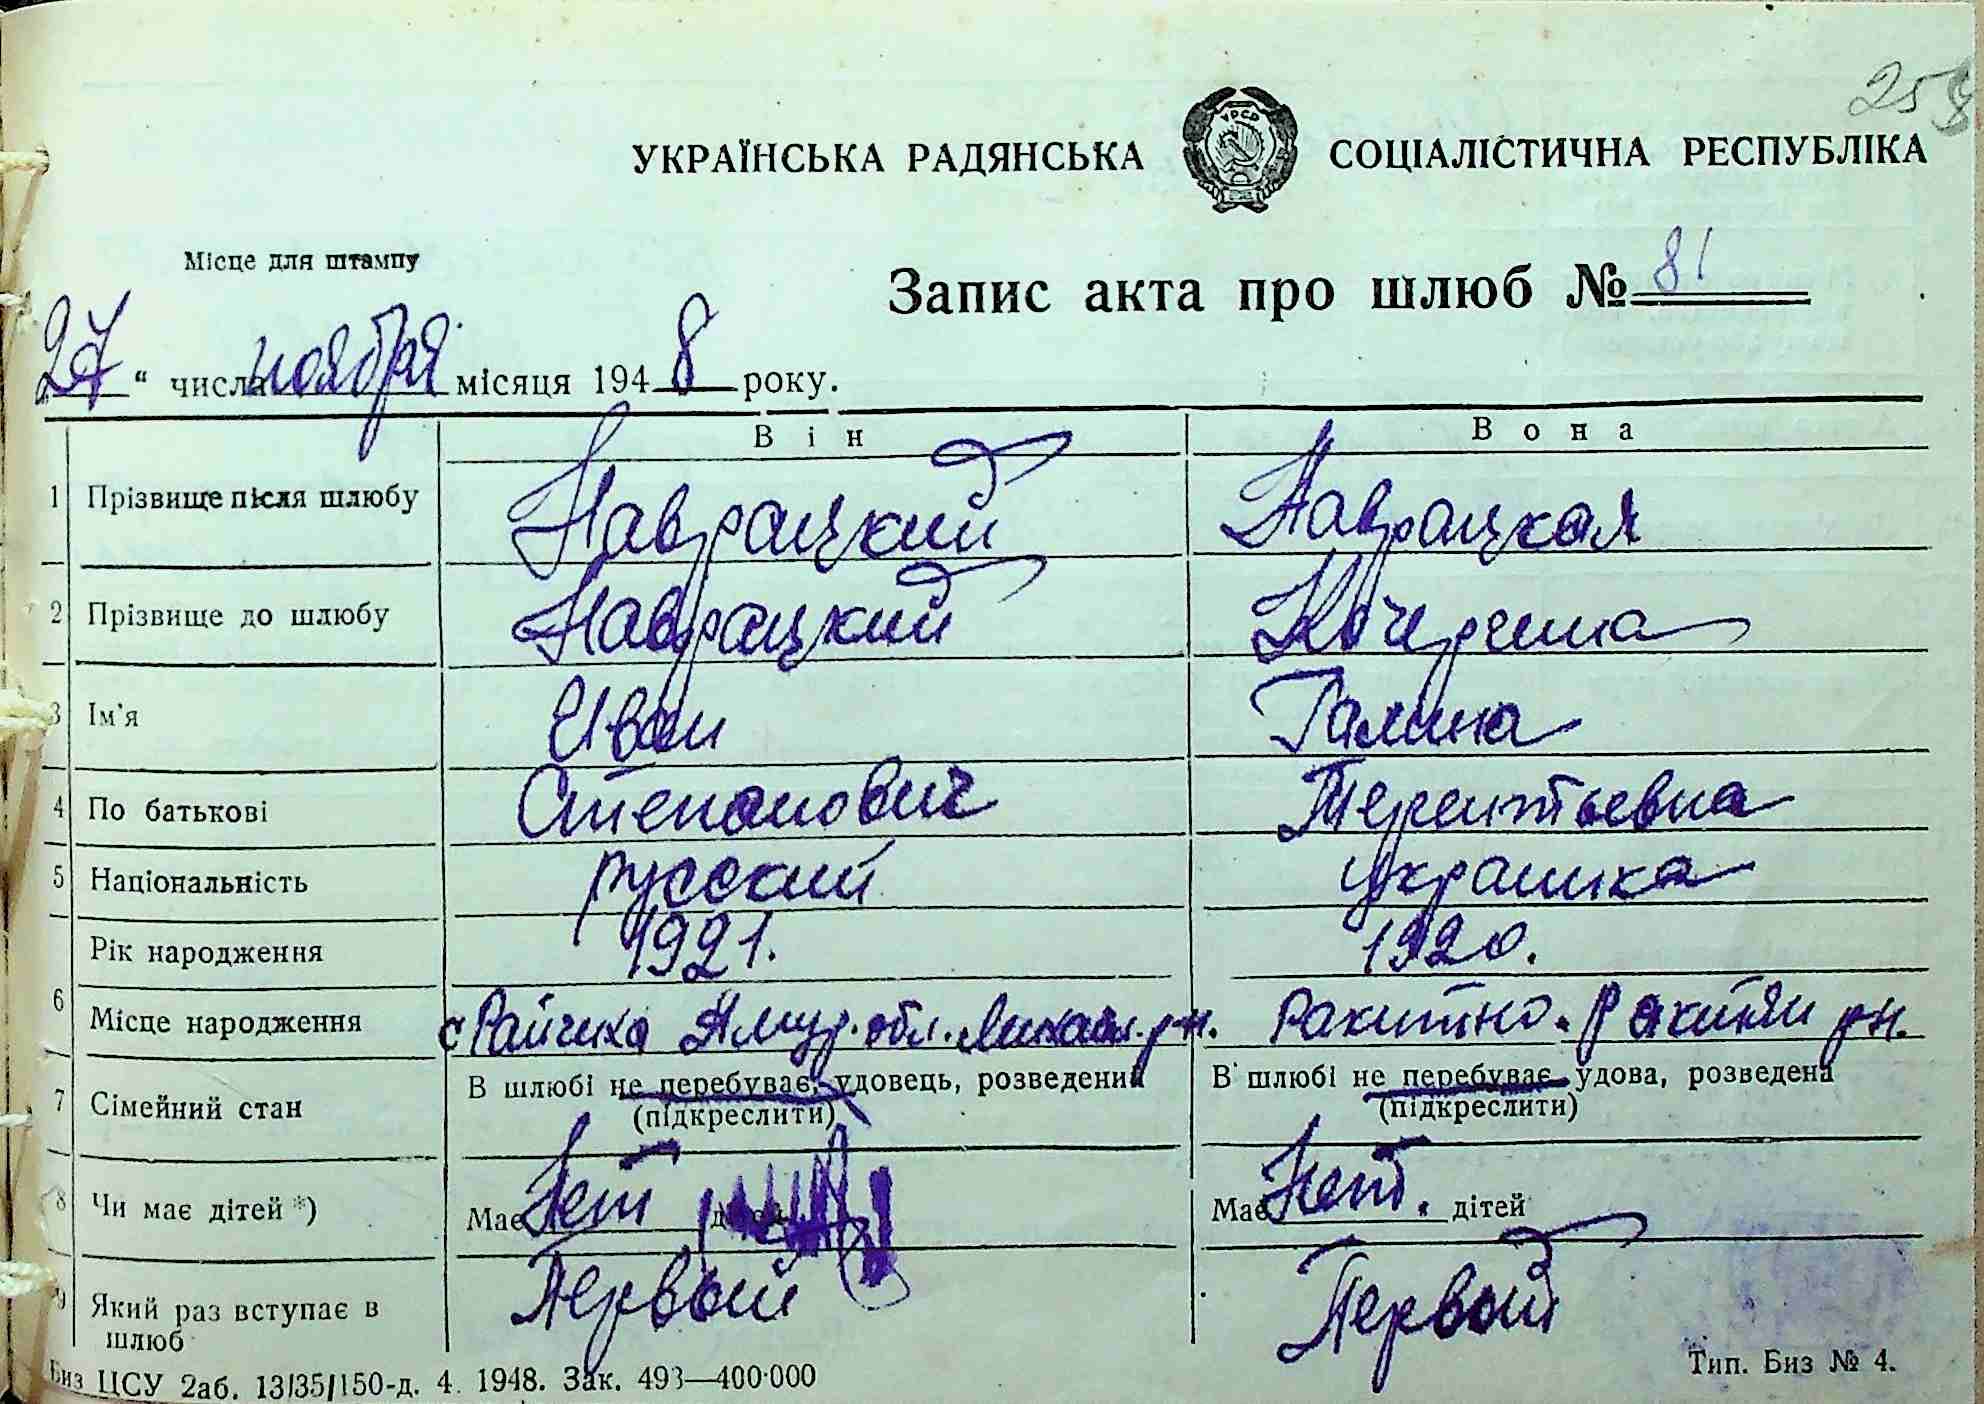 258
УКРАЇНСЬКА РАДЯНСЬКА СОЦІАЛІСТИЧНА РЕСПУБЛІКА
УРСР
Місце для штампу
Запис акта про шлюб № 81
27 “ числа ноября місяця 1948 року.
Він Вона
1 Прізвище після шлюбу Наврацкий Наврацкая
2 Прізвище до шлюбу Наврацкий Кочергина
3 Ім'я Иван Галина
4 По батькові Степанович Терентьевна
5 Національність русский украинка
Рік народження 1921. 1920.
6 Місце народження с Райчиха Амур. обл. Михайл. р-н. Ракитно. Ракитян рн.
7 Сімейний стан В шлюбі не перебуває, удовець, розведений В шлюбі не перебуває удова, розведена
(підкреслити) (підкреслити)
8 Чи має дітей *) Має Нет Має Нет. дітей
9 Який раз вступає в шлюб Первый Первый
Биз ЦСУ 2аб. 13/35/150-д. 4. 1948. Зак. 493—400·000 Тип. Биз № 4.